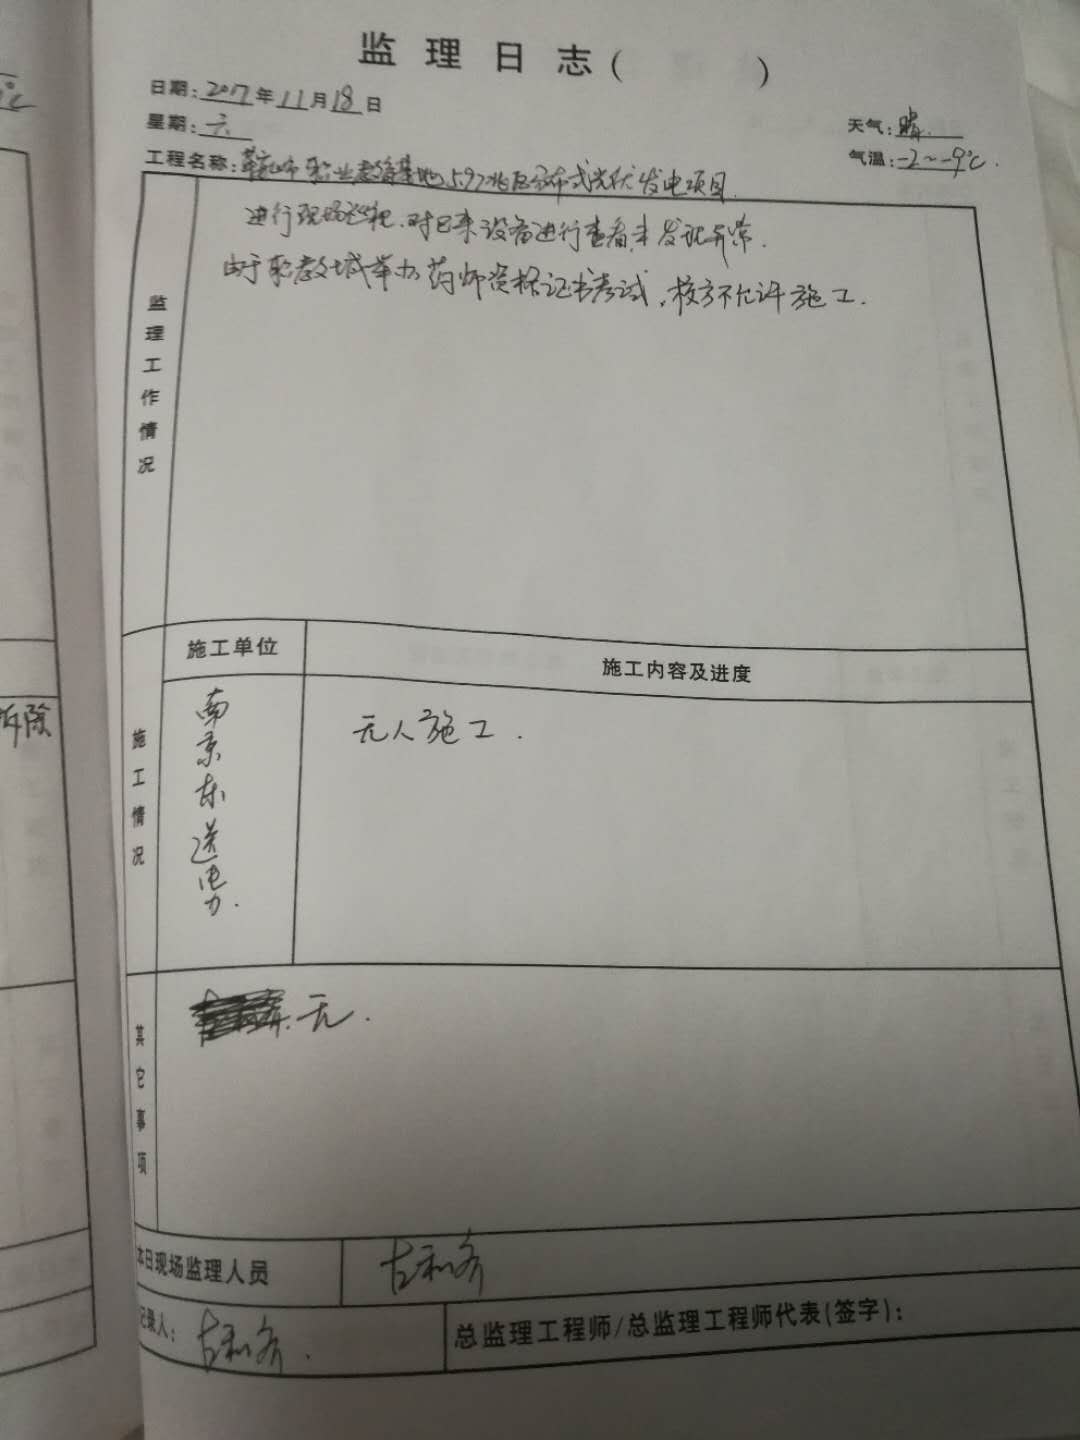 ℃
拆除
监理日志( )
日期:2017年11月18日
星期:六
天气:晴.
气温:-2~-9℃.
工程名称:鞍山市职业教育基地5.97兆瓦分布式光伏发电项目.
监理工作情况
进行现场巡视.对已来设备进行查看,未发现异常.
由于职教城举办药师资格证书考试,校方不允许施工.
施工单位
施工内容及进度
施工情况
南京东送电力.
无人施工.
其它事项
无.
本日现场监理人员
记录人:
总监理工程师/总监理工程师代表(签字):